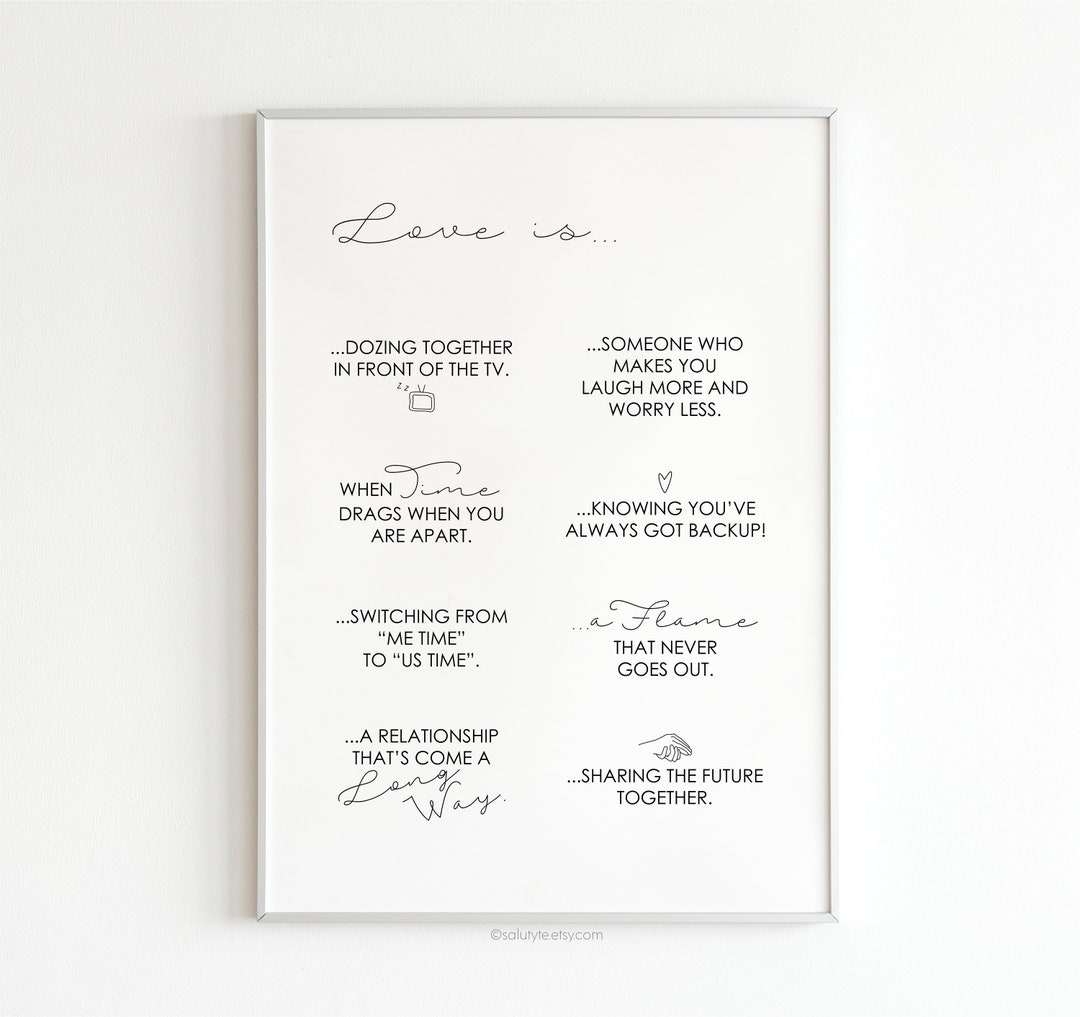 Love is...
...DOZING TOGETHER
IN FRONT OF THE TV.
z z
...SOMEONE WHO
MAKES YOU
LAUGH MORE AND
WORRY LESS.
WHEN Time
DRAGS WHEN YOU
ARE APART.
...KNOWING YOU’VE
ALWAYS GOT BACKUP!
...SWITCHING FROM
“ME TIME”
TO “US TIME”.
...a Flame
THAT NEVER
GOES OUT.
...A RELATIONSHIP
THAT’S COME A
Long
Way.
...SHARING THE FUTURE
TOGETHER.
©salutyte.etsy.com